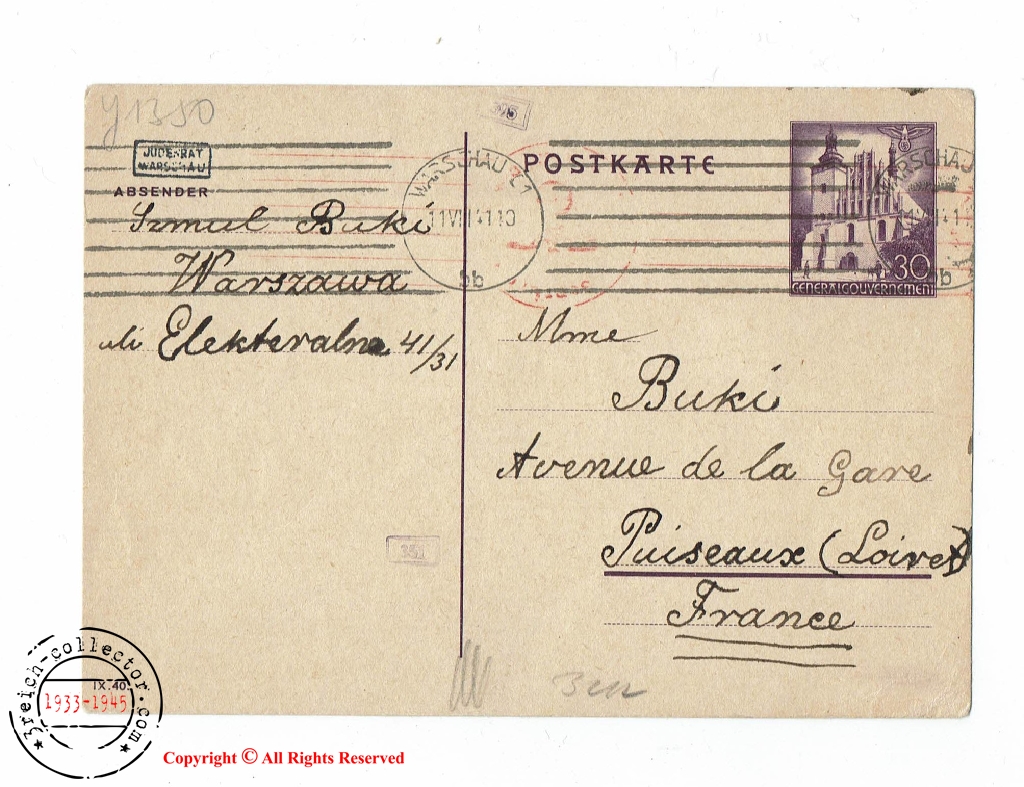 y1350
JUDENRAT
WARSCHAU
ABSENDER
Szmul Buki
Warszawa
uli Elekteralna 41/31
395
WARSCHAU C1
bb
POSTKARTE
WARSCHAU
bb
30
GENERALGOUVERNEMENT
Mme
Buki
Avenue de la Gare
Puiseaux (Loiret)
France
351
3reich-collector.com
IX.40.
1933-1945
Copyright © All Rights Reserved